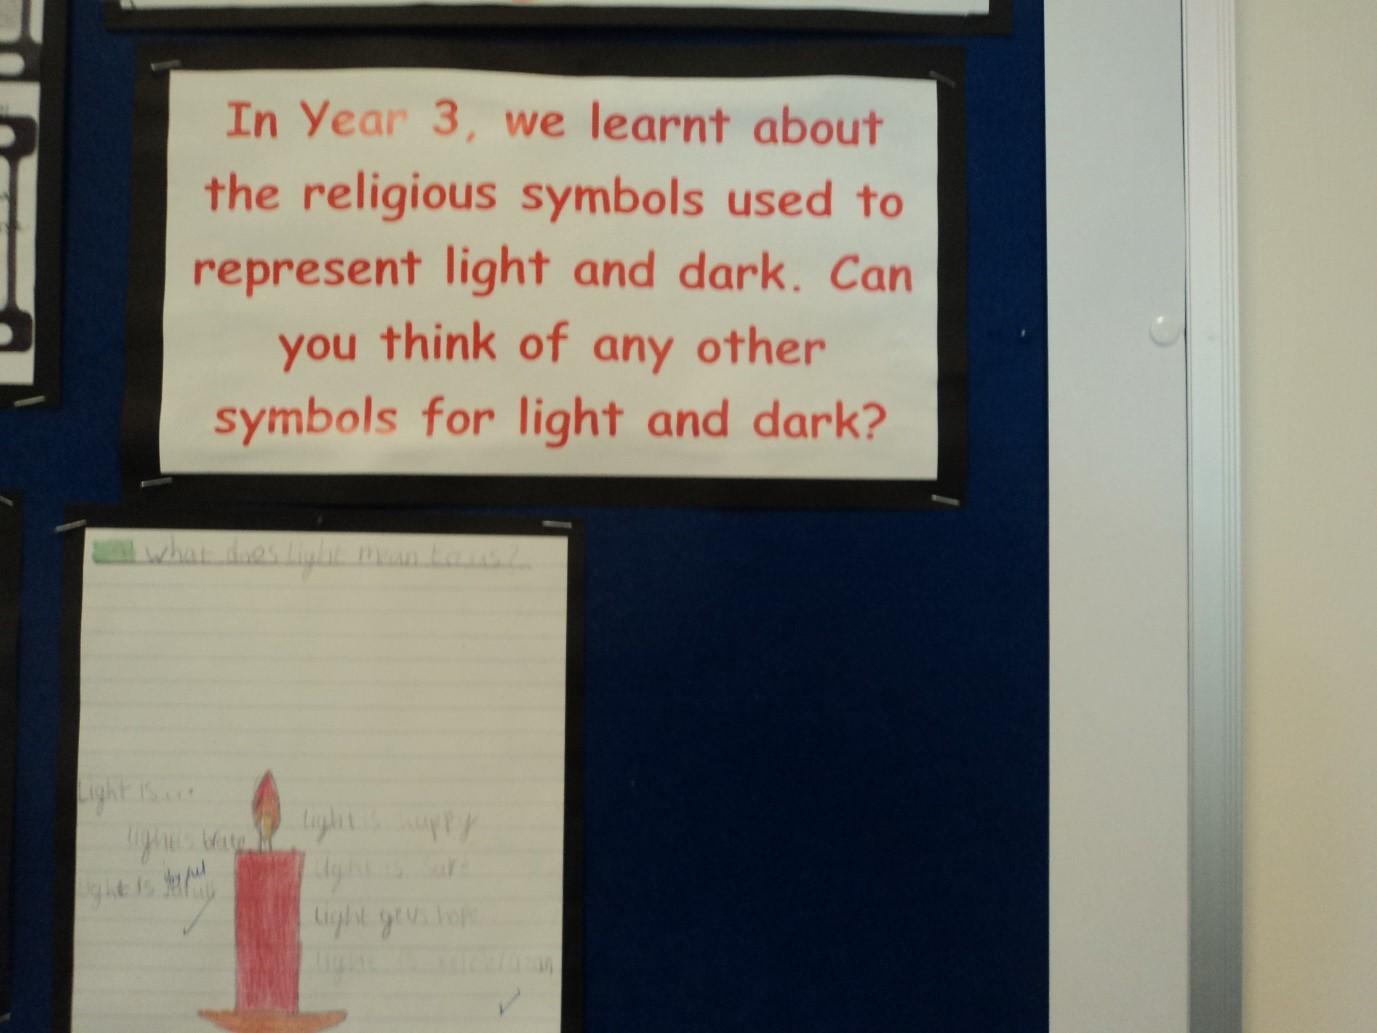 In Year 3, we learnt about
the religious symbols used to
represent light and dark. Can
you think of any other
symbols for light and dark?
What does Light mean to us?
Light is...
light is happy
light is
Light is
joyful
Light is
Light gevs hope
light is